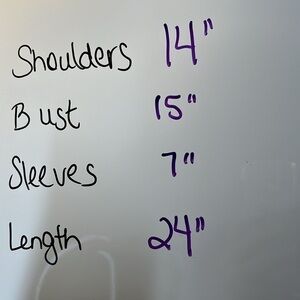 Shoulders 14"
Bust 15"
Sleeves 7"
Length 24"